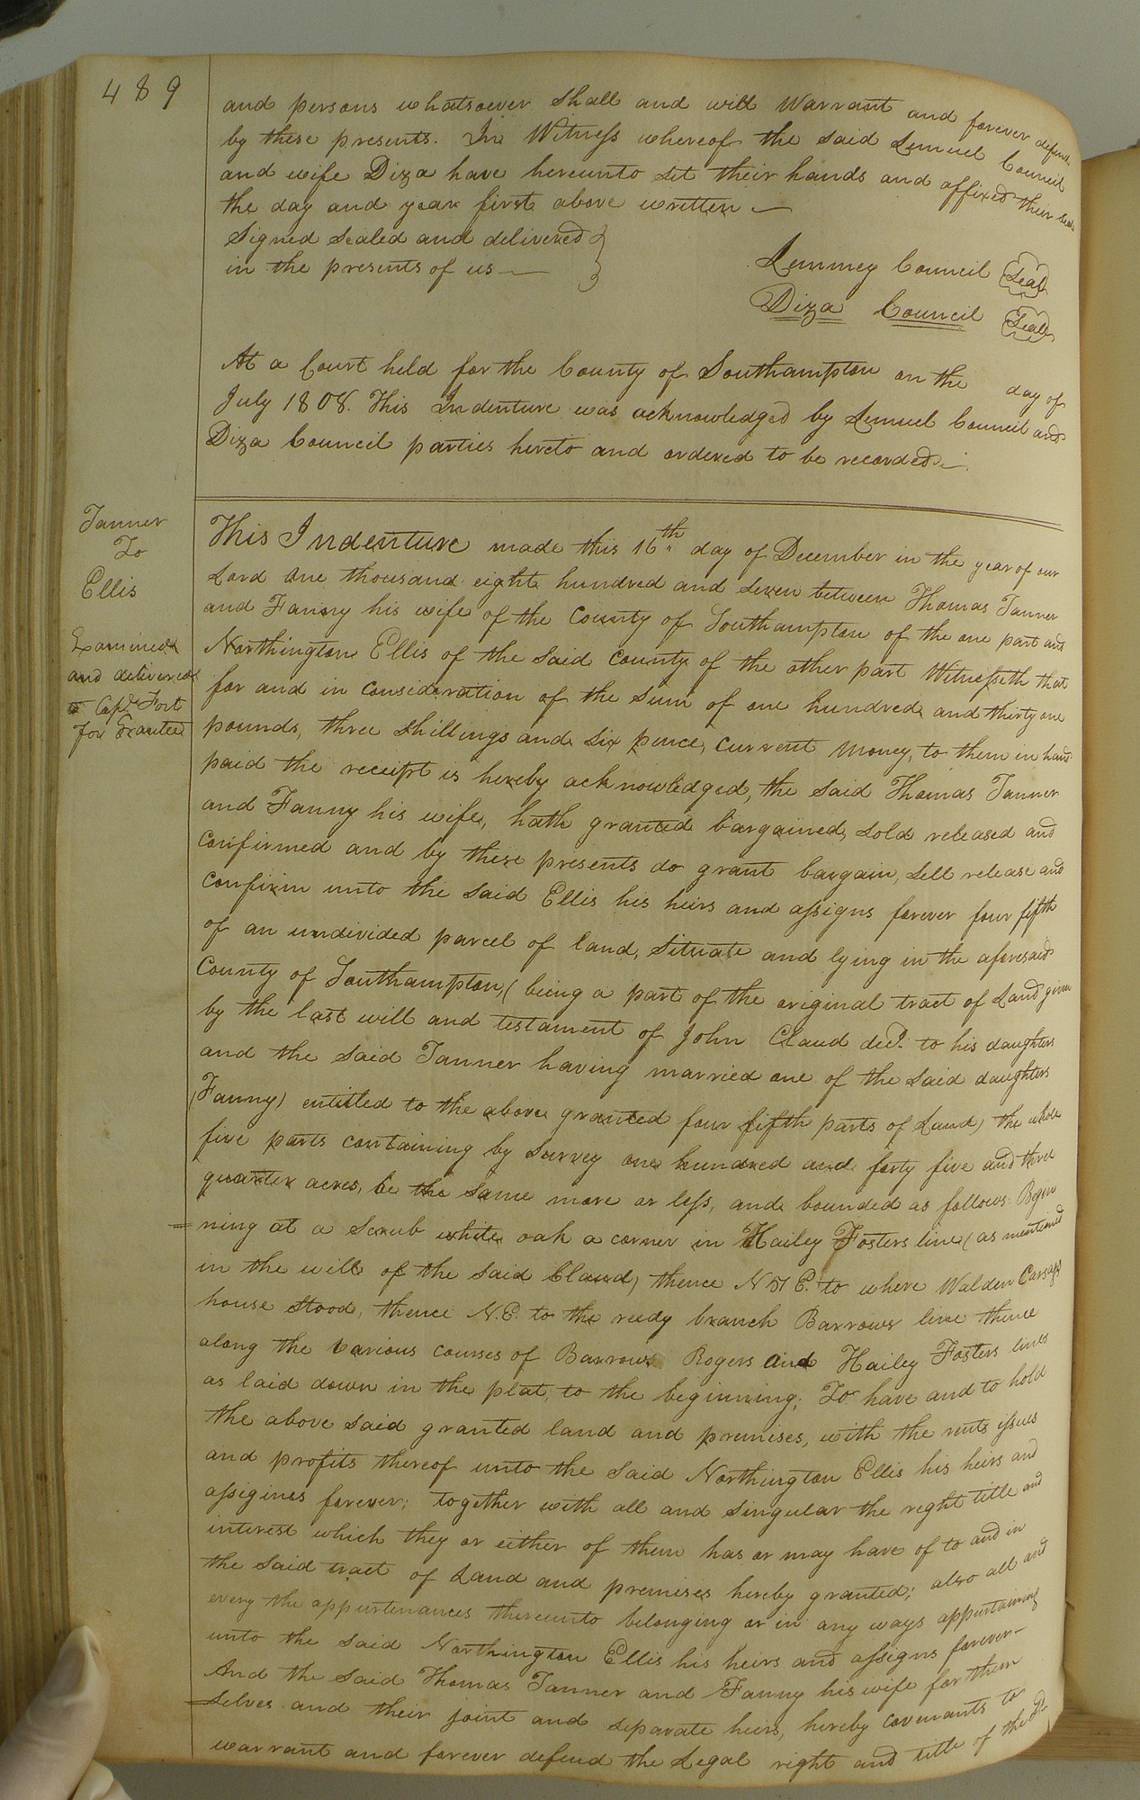 489
and persons whatsoever shall and will Warrant and forever defend
by these presents. In Witness whereof the said Lemuel Council
and wife Diza have hereunto set their hands and affixed their seals
the day and year first above written
Signed sealed and delivered
in the presents of us
Lemmey Council Seal
Diza Council Seal
At a Court held for the County of Southampton on the day of
July 1808. This Indenture was acknowledged by Lemuel Council and
Diza Council parties hereto and ordered to be recorded.
Tanner
To
Ellis
Examined
and delivered
to Capt. Fort
for Grantee
This Indenture made this 16th day of December in the year of our
Lord One thousand eight hundred and seven between Thomas Tanner
and Fanny his wife of the County of Southampton of the one part and
Northington Ellis of the said County of the other part Witnesseth that
for and in consideration of the sum of one hundred and thirty one
pounds, three shillings and six pence, Current money, to them in hand
paid the receipt is hereby acknowledged, the said Thomas Tanner
and Fanny his wife, hath granted bargained, sold released and
confirmed and by these presents do grant bargain, sell release and
confirm unto the said Ellis his heirs and assigns forever four fifth
of an undevided parcel of land, Situate and lying in the aforesaid
County of Southampton, (being a part of the original tract of Land given
by the last will and testament of John Claud decd. to his daughters
and the said Tanner having married one of the said daughters
(Fanny) entitled to the above granted four fifth parts of Land) the whole
five parts containing by Survey one hundred and forty five and three
quarter acres, be the same more or less, and bounded as follows. Begin
=ning at a Scrub white oak a corner in Hailey Fosters line (as mentioned
in the will of the said Claud) thence N E. to where Walden
house stood, thence N.E. to the reedy branch Barrows line thence
along the various courses of Barrows Rogers and Hailey Fosters lines
as laid down in the plat, to the beginning; To have and to hold
the above said granted land and premises, with the rents issues
and profits thereof unto the said Northington Ellis his heirs and
assigines forever; together with all and singular the right title and
interest which they or either of them has or may have of to and in
the said tract of Land and premises hereby granted; also all and
every the appurtenances thereunto belonging or in any ways appurtaining
unto the said Northington Ellis his heirs and assigns forever—
And the said Thomas Tanner and Fanny his wife for them
=selves and their joint and separate heirs, hereby covenants to
warrant and forever defend the Legal right and title of the sd.